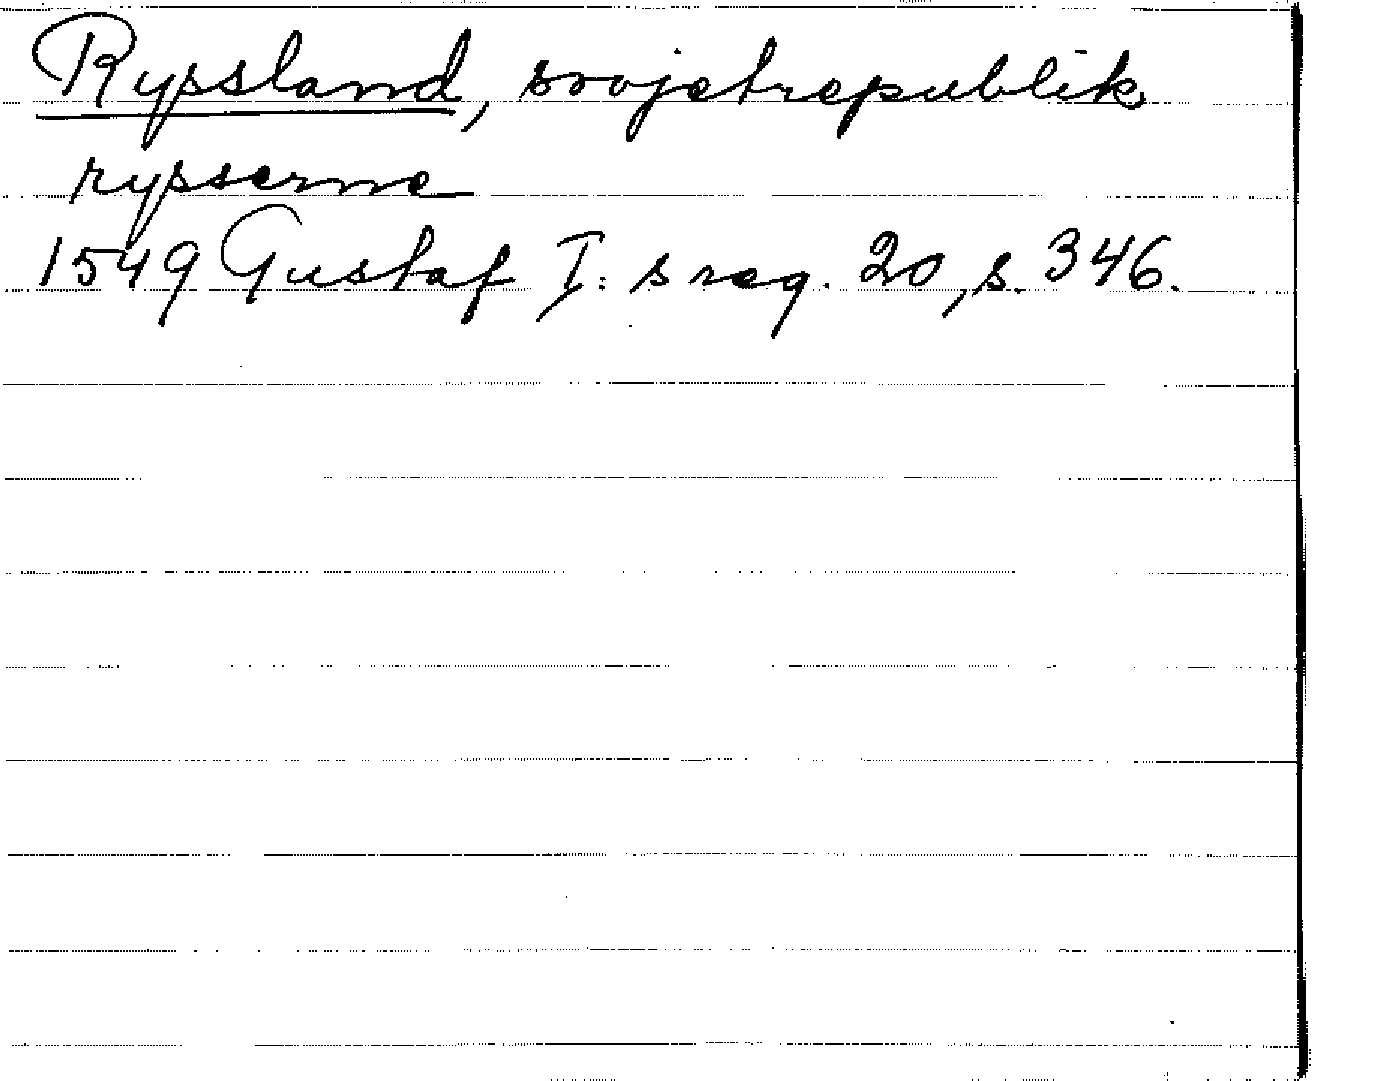 Ryssland, sovjetrepublik
rysserne
1549 Gustaf I: s reg. 20, s. 346.